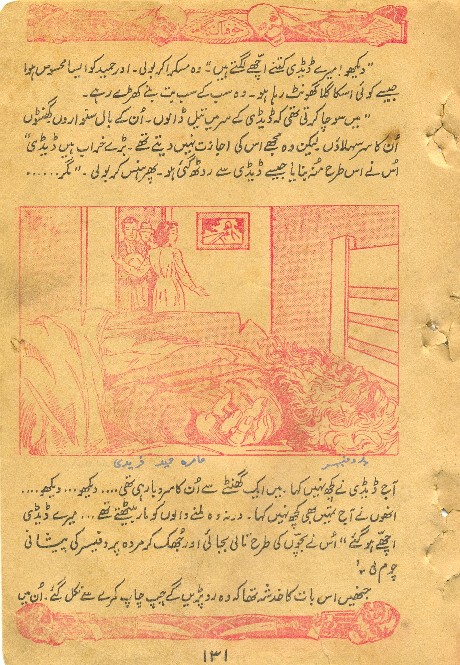 خوفناک
"دیکھو! میرے ڈیڈی کتنے اچھے لگتے ہیں" وہ مسکرا کر بولی۔ اور حمید کو ایسا محسوس ہوا
جیسے کوئی اسکا گلا گھونٹ رہا ہو۔ وہ سب کے سب بت بنے کھڑے رہے۔
"میں سوچا کرتی تھی کہ ڈیڈی کے سر میں تیل ڈالوں۔ اُن کے بال سنواروں گھنٹوں
اُن کا سر سہلاؤں لیکن وہ مجھے اس کی اجازت نہیں دیتے تھے۔ بڑے خراب ہیں ڈیڈی"
اُس نے اس طرح منہ بنایا جیسے ڈیڈی سے روٹھ گئی ہو۔ پھر ہنس کر بولی۔ "مگر......
پروفیسر
حمید فریدی
آج ڈیڈی نے کچھ نہیں کہا۔ میں ایک گھنٹے سے اُن کا سر دبا رہی تھی.... دیکھو... دیکھو....
انھوں نے آج تمہیں بھی کچھ نہیں کہا۔ ورنہ وہ ملنے والوں کو مار بیٹھتے تھے... میرے ڈیڈی
اچھے ہو گئے" اُس نے بچوں کی طرح تالی بجائی اور جھک کر مردہ پروفیسر کی پیشانی
چوم لی۔
جنھیں اس بات کا خدشہ تھا کہ وہ رو پڑیں گے چپ چاپ کمرے سے نکل گئے۔ اُن میں
۱۳۱